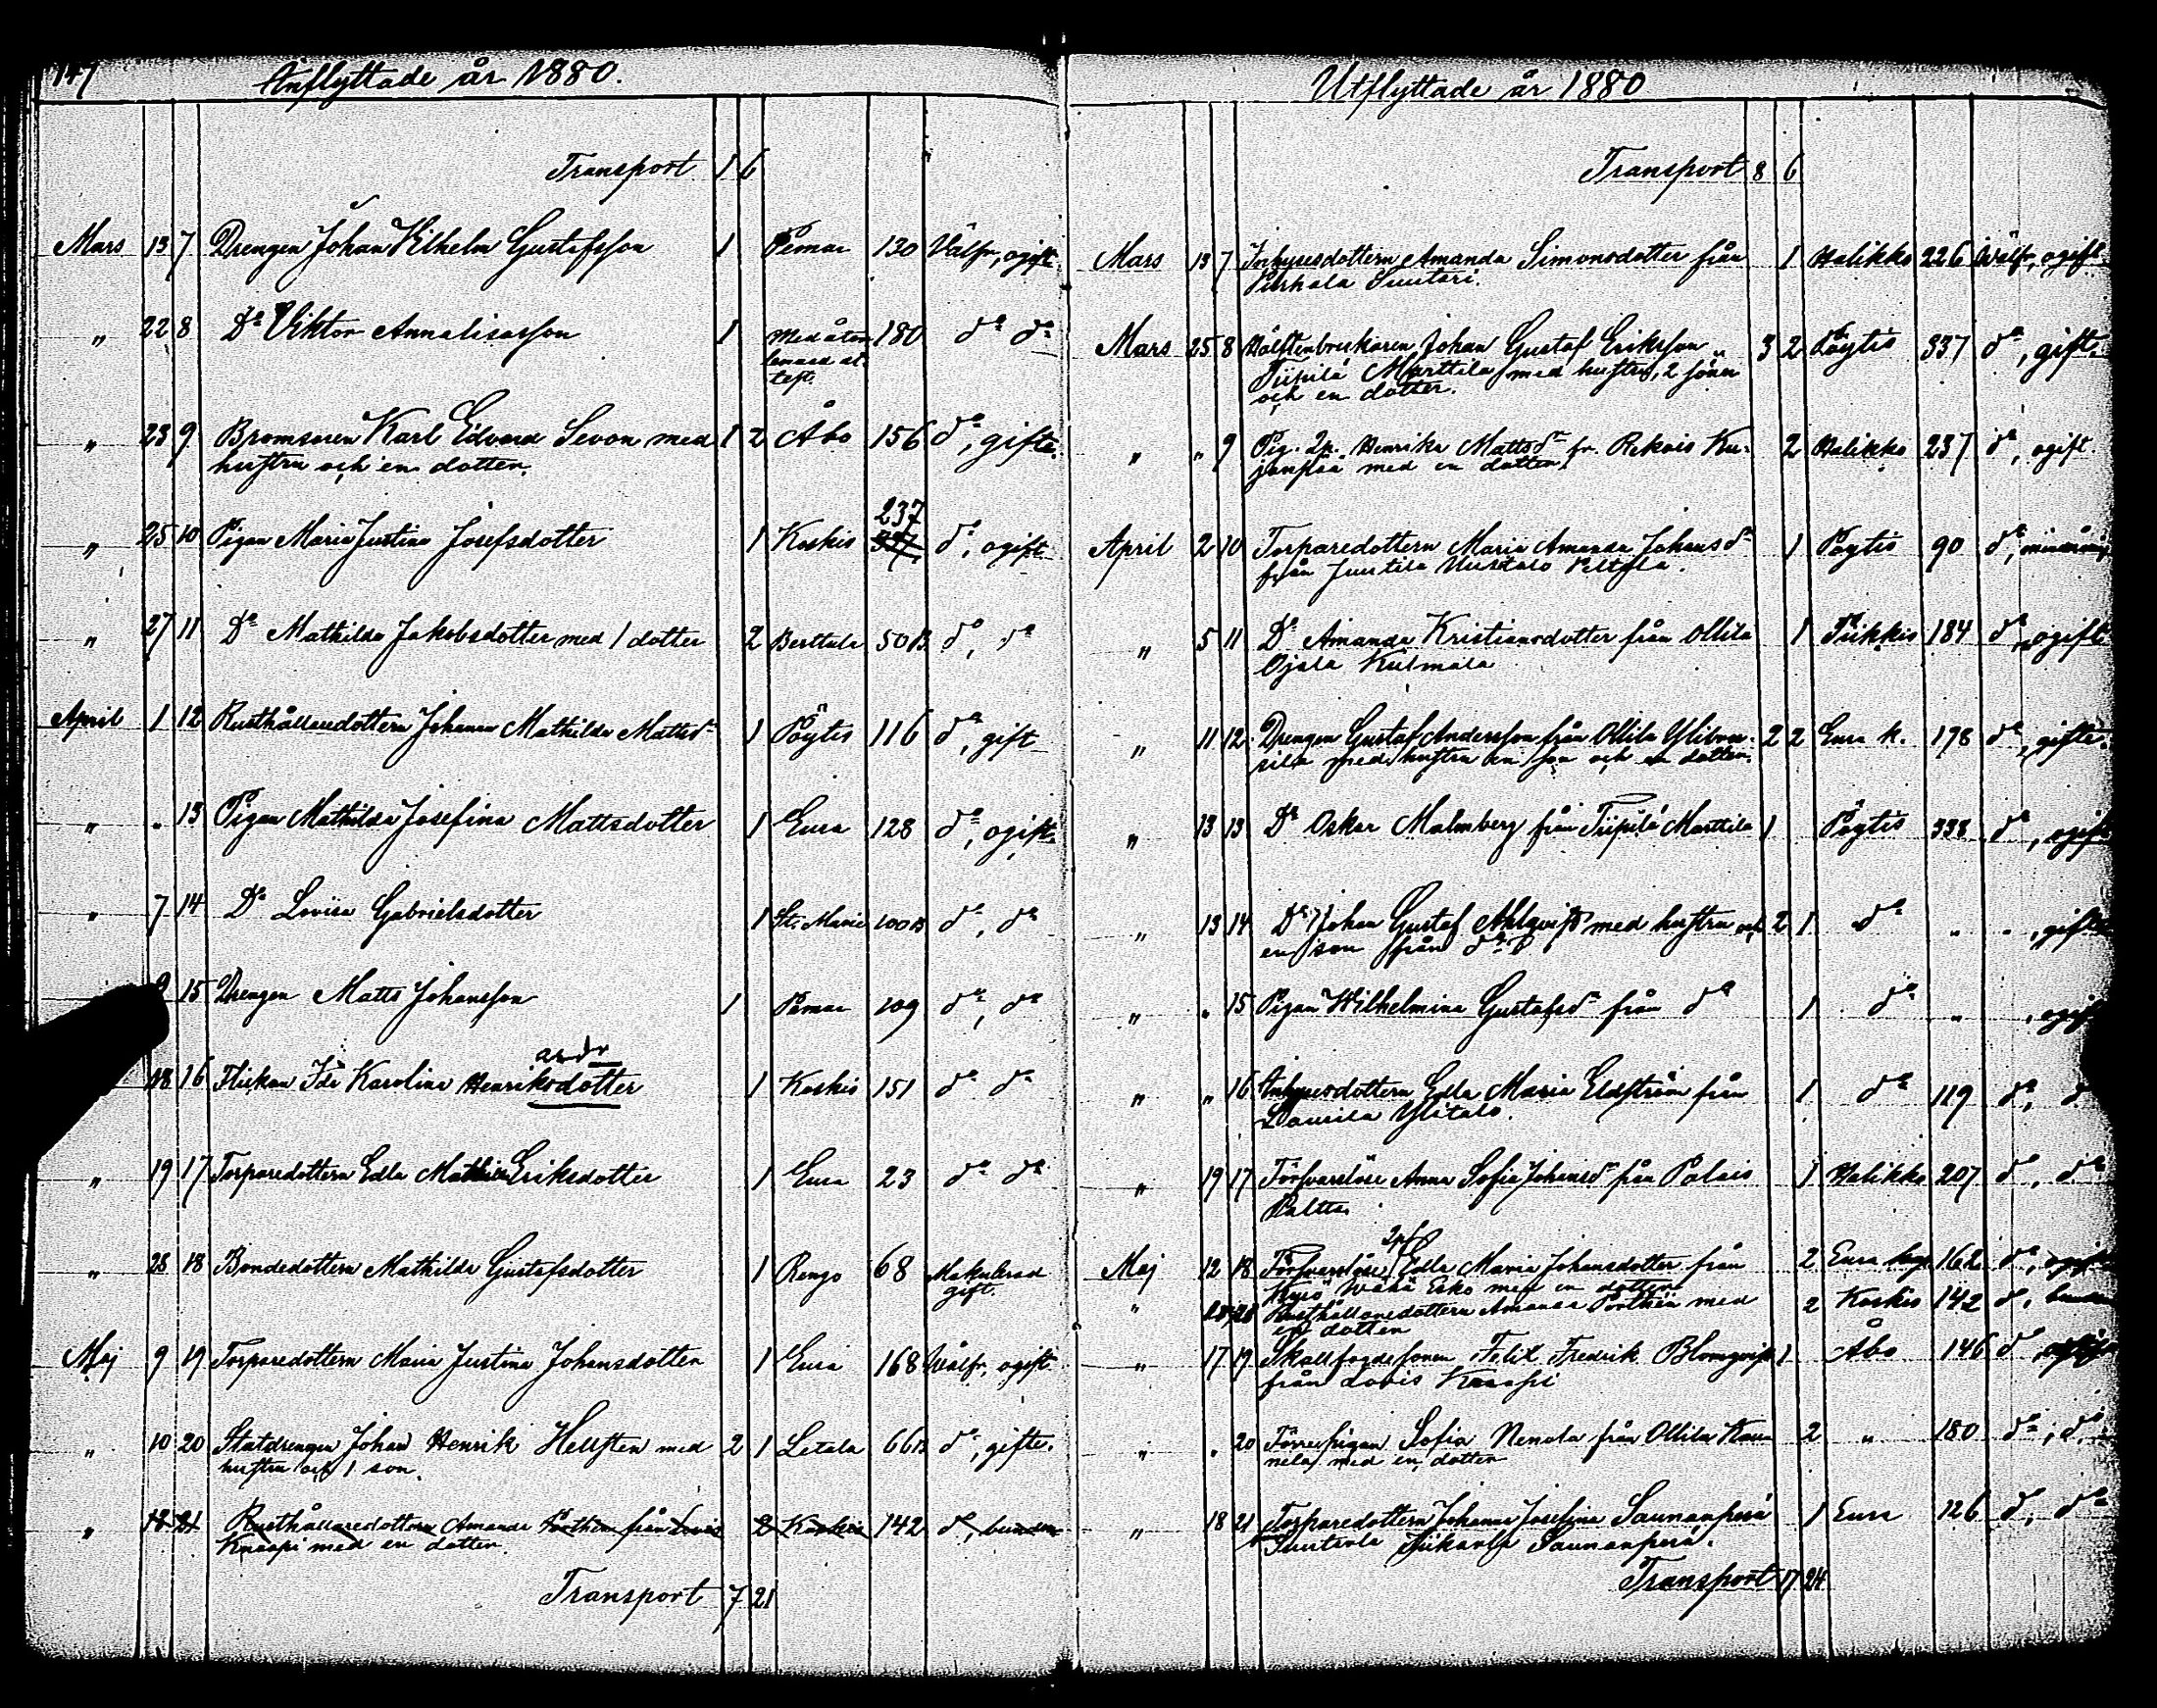 147
Inflyttade år 1880.
Transport 1 6
Mars 13 7 Drengen Johan Vilhelm Gustafsson 1 Pemar 130 Välfr, ogift
" 22 8 Dº Viktor Annalisasson 1 Med åter- 180 dº dº
lemnad at-
test.
" 23 9 Bromsaren Karl Edvard Sevon med 1 2 Åbo 156 dº, gifte.
hustru och en dotter.
237
" 25 10 Pigan Maria Justina Josefsdotter 1 Koskis 337 dº, ogift
" 27 11 Dº Mathilda Jakobsdotter med 1 dotter 2 Berttula 50B. dº, dº
April 1 12 Rusthållaredottern Johanna Mathilda Mattsdº 1 Pöytis 116 dº, gift
" " 13 Pigan Mathilda Josefina Mattsdotter 1 Eura 128 dº, ogift.
" 7 14 Dº Lovisa Gabrielsdotter 1 St. Marie 100B dº, dº
9 15 Drengen Matts Johansson 1 Pemar 109 dº, dº
18 16 Flickan Ida Karolina Henriksdotter 1 Koskis 151 dº dº
" 19 17 Torparedottern Edla Eriksdotter 1 Eura 23 dº dº
" 28 18 Bondedottern Mathilda Gustafsdotter 1 Rengo 68 Makulerad
gift.
Maj 9 19 Torparedottern Maria Justina Johansdotter 1 Eura 168 Välfr, ogift
" 10 20 Statdrengen Johan Henrik Hellsten med 2 1 Letala 66B dº, gifte.
hustru och 1 son.
" 12 21 Rusthållaredottern Amanda Porthen från Lovis 2 Koskis 142 dº,
Knaapi med en dotter.
Transport 7 21
Utflyttade år 1880
Transport 8 6
Mars 13 7 Inhysesdottern Amanda Simonsdotter från 1 Halikko 226 Wälfr, ogift.
Suutari.
Mars 25 8 Hälftenbrukaren Johan Gustaf Eriksson 3 2 Pöytis 337 dº, gift.
Tiipilä Marttila med hustru, 2 söner
och en dotter.
" " 9 Pig. Henrika Mattsdº fr. Rekois Ku- 2 Halikko 237 dº, ogift.
janpää med en dotter.
April 2 10 Torparedottern Maria Amanda Johansdº 1 Pöytis 90 dº,
från Juutila Uusitalo
" 5 11 Dº Amanda Kristiansdotter från Ollila 1 Piikkis 184 dº, ogift
Ojala Kulmala
" 11 12. Drengen Gustaf Andersson från Ollila 2 2 Eura k. 178 dº, gifte.
med hustru en son och en dotter.
" 13 13 Dº Oskar Malmberg från Tiipilä Marttila 1 Pöytis 338 dº, ogift
" 13 14 Dº Johan Gustaf Ahlqvist med hustru och 2 1 dº " ", gifte
en son från dº
" " 15 Pigan Wilhelmina Gustafsdº från dº 1 dº " , ogift
" " 16 Inhysesdottern Edla Maria Eldström från 1 dº 119 dº,
Laurila Ylitalo.
" 19 17 Försvarslöse Anna Sofia Johansdº från Palais 1 Halikko 207 dº, dº
Paltta.
Maj 12 18 Försvarslöse Edla Maria Johansdotter från 2 Eura 162 dº,
Kyrö Wähä Esko med en dotter
" Rusthållaredottern Amanda Porthén med 2 Koskis 142 dº,
en dotter
" 17 19 Skallfogdesonen Felix Fredrik Blomqvist 1 Åbo 146 dº,
från Lovis Knaapi
" " 20 Sofia Nenola från Ollila 2 " 180 dº, dº
nela med en dotter
" 18 21 Torparedottern Johanna Josefina Saunanperä 1 Eura 126 dº, dº
Saunanperä.
Transport 17 24